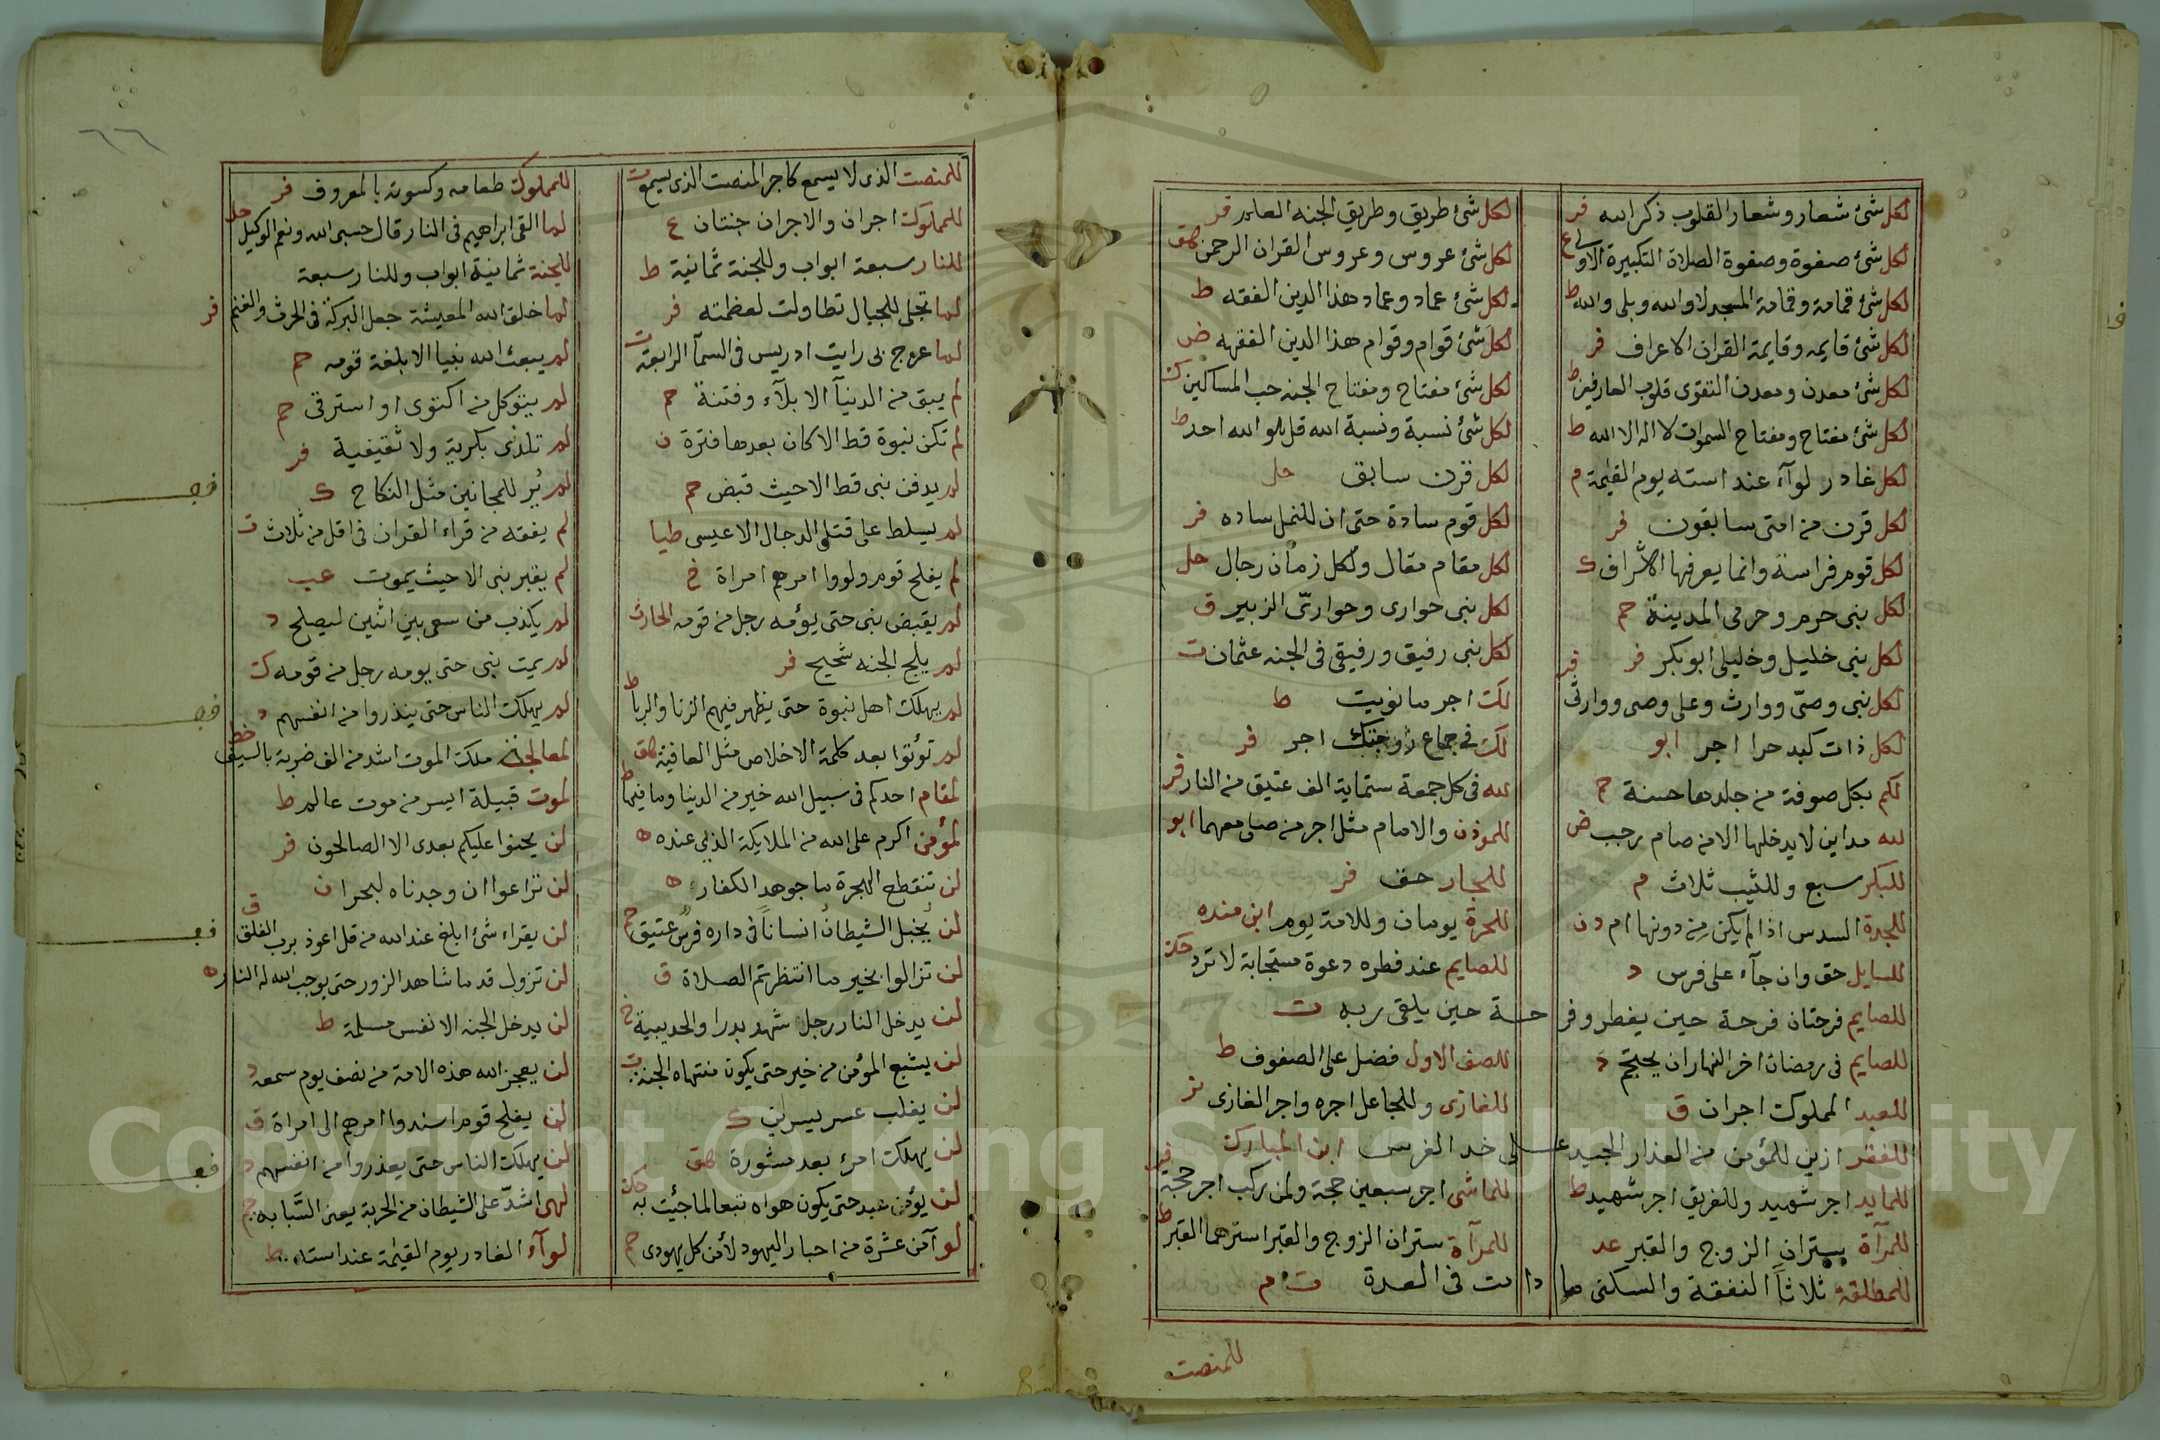 لكل شئ شعار وشعار القلوب ذكر الله فر
لكل شئ صفوة وصفوة الصلاة التكبيرة الاولى ع
لكل شئ قمامة وقمامة المسجد لا والله وبلى والله ط
لكل شئ قايمه وقايمة القران الاعراف فر
لكل شئ معدن ومعدن التقوى قلوب العارفين ط
لكل شئ مفتاح ومفتاح السموات لا اله الا الله ط
لكل غادر لوآء عند استه يوم القيمة م
لكل قرن من امتى سابقون فر
لكل قوم فراسة وانما يعرفها الاشراف ك
لكل بنى حرم وحرمى المدينة حم
لكل نبى خليل وخليلى ابوبكر فر
لكل نبى وصىّ ووارث وعلى وصى ووارثى فر
لكل ذات كبد حرا اجر ابو
لكم بكل صوفة من جلدها حسنة ح
لله مداين لا يدخلها الا من صام رجب ض
للبكر سبع وللثيب ثلاث م
للجدة السدس اذا لم يكن من دونها ام د ن
للسايل حق وان جآء على فرس د
للصايم فرحتان فرحة حين يفطر وفرحة حين يلقى ربه ت
للصايم فى رمضان اخر النهار ان يحتجم د
للعبد المملوك اجران ق
للفقر ازين للمؤمن من العذار الجيد على خد الفرس ابن المبارك
للمايد اجر شهيد وللغريق اجر شهيد ط
للمرآة ستران الزوج والقبر عد
للمطلقة ثلاثاً النفقة والسكنى ما دامت فى العدة ت م
لكل شئ طريق وطريق الجنه العلم فر
لكل شئ عروس وعروس القران الرحمن هق
لكل شئ عماد وعماد هذا الدين الفقه ط
لكل شئ قوام وقوام هذا الدين الفقهه ض
لكل شئ مفتاح ومفتاح الجنه حب المساكين ك
لكل شئ نسبة ونسبة الله قل هو الله احد ط
لكل قرن سابق حل
لكل قوم سادة حتى ان للنمل ساده فر
لكل مقام مقال ولكل زمان رجال حل
لكل نبى حوارى وحوارىّ الزبير ق
لكل نبى رفيق ورفيقى فى الجنه عثمان ت
لك اجر ما نويت ط
لك فى جماع زوجتك اجر فر
لله فى كل جمعة ستماية الف عتيق من النار فر
للموذن والامام مثل اجر من صلى معهما ابو
للجار حق فر
للحرة يومان وللامة يوم ابن منده
للصايم عند فطره دعوة مستجابة لا ترد حك
للصف الاول فضل على الصفوف ط
للغازى وللجاعل اجره واجر الغازى
للماشى اجر سبعين حجة ولمن يركب اجر حجة فر
للمرآة ستران الزوج والقبر استرهما القبر ط
للمنصت
٦٦
للمنصت الذى لا يسمع كاجر المنصت الذى يسمع
للمملوك اجران والاجران جنتان ع
للنار سبعة ابواب وللجنة ثمانية ط
لما تجلى للجبال تطاولت لعظمته فر
لما عرج بى رايت ادريس فى السمآ الرابعة ت
لم يبق من الدنيآ الا بلآء وفتنة حم
لم تكن نبوة قط الا كان بعدها فترة ن
لم يدفن نبى قط الا حيث قبض حم
لم يسلط على قتل الدجال الا عيسى طيا
لم يفلح قوم ولووا امرهم امراة خ
لم يقبض نبى حتى يؤمه رجل من قومه الحارث
لم يلج الجنه شحيح فر
لم يهلك اهل نبوة حتى يظهر فيهم الزنا والربا ط
لم تؤتوا بعد كلمة الاخلاص مثل العافية هق
لمقام احدكم فى سبيل الله خير من الدنيا وما فيها ط
لمؤمن اكرم على الله من الملايكة الذين عنده ه
لن تنقطع الهجرة ما جوهد الكفار ه
لن يُخبل الشيطان انساناً فى داره فرس عتيق ح
لن تزالوا بخير ما انتظرتم الصلاة ق
لن يدخل النار رجل شهد بدرا والحديبية خ
لن يشبع المؤمن من خير حتى يكون منتهاه الجنة ت
لن يغلب عسر يسرين ك
لن يهلك امرء بعد مشورة هق
لن يؤمن عبد حتى يكون هواه تبعا لما جئت به حك
لو آمن عشرة من احبار اليهود لأمن كل يهودى حم
للمملوك طعامه وكسوته بالمعروف فر
لما القى ابراهيم فى النار قال حسبى الله ونعم الوكيل حل
للجنة ثمانية ابواب وللنار سبعة
لما خلق الله المعيشة جعل البركة فى الحرث والغنم فر
لم يبعث الله نبيا الا بلغة قومه حم
لم يتوكل من اكتوى او استرقى حم
لم تلدنى بكرية ولا ثقيفية فر
لم يُر للمجانين مثل النكاح ك
لم يفقه من قراء القران فى اقل من ثلاث ت
لم يقبر نبى الا حيث يموت عب
لم يكذب من سعى بين اثنين ليصلح د
لم يمت نبى حتى يومه رجل من قومه ك
لم يهلك الناس حتى يتذروا من انفسهم د
لمعالجة ملك الموت اشد من الف ضربة بالسيف خط
لموت قبيلة ايسر من موت عالم ط
لن يحنوا عليكم بعدى الا الصالحون فر
لن تزاعوا ان وجدناه لبحرا ن
لن يقراء شئ ابلغ عند الله من قل اعوذ برب الفلق ق
لن تزول قدما شاهد الزور حتى يوجب الله له النار ه
لن يدخل الجنه الا نفس مسلمة ط
لن يعجز الله هذه الامة من نصف يوم سمعه د
لن يفلح قوم اسندوا امرهم الى امراة ق
لن يهلك الناس حتى يعذروا من انفسهم د
لهى اشدّ على الشيطان من الحربة يعنى السَّبابه
لوآء الغادر يوم القيمة عند استه ط
Copyright © King Saud University
1957